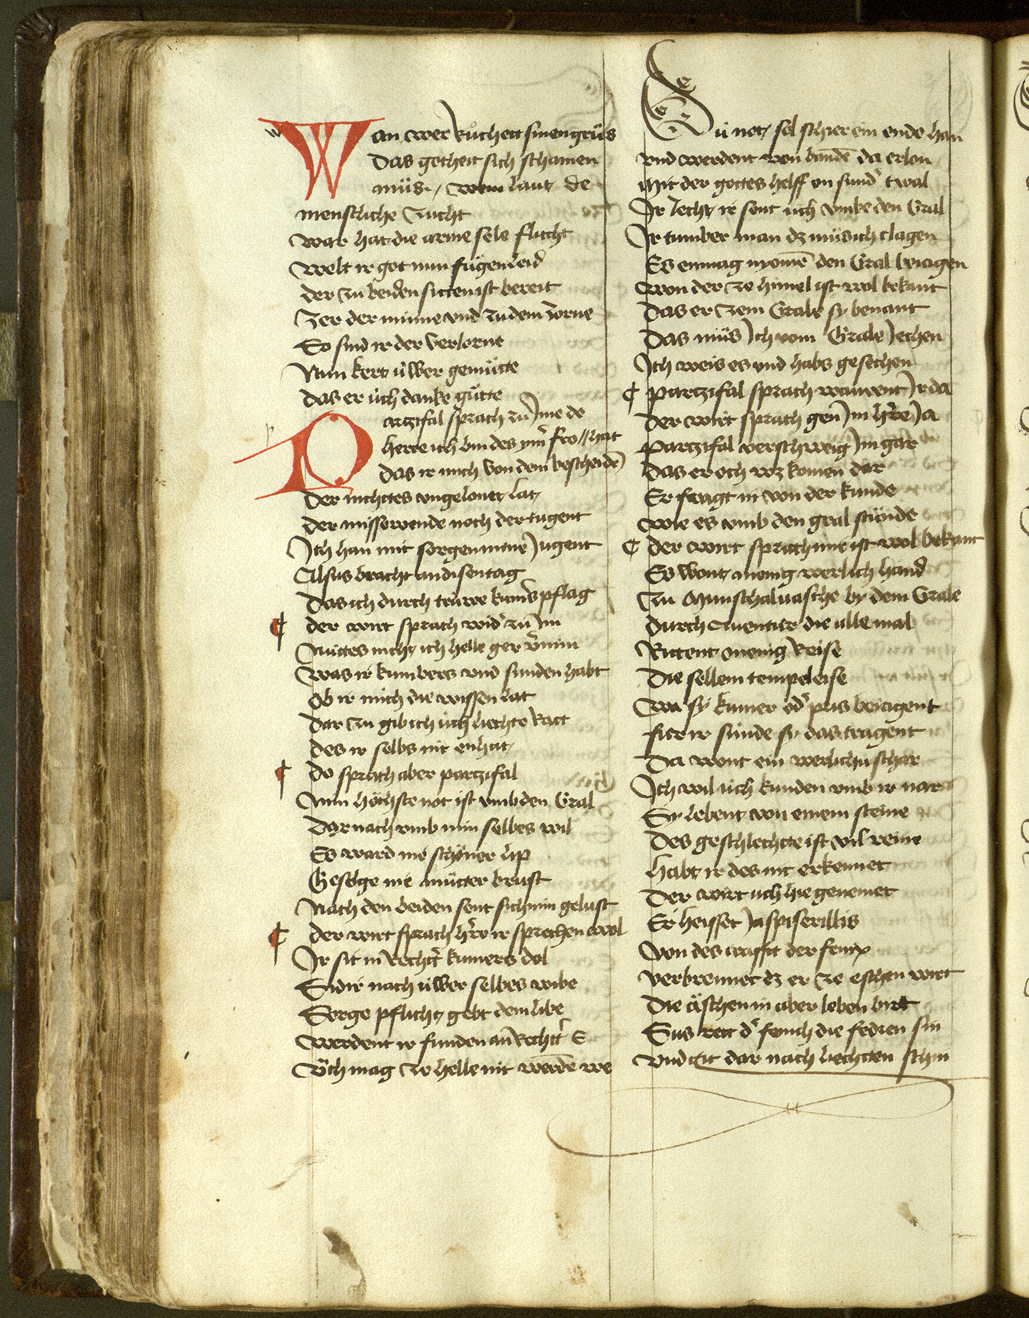 Wan wer kúschett sinen grůs
Das getheit sich schamen
můs / wem laut de
menschliche zucht
war hat die arme sele flucht
welt ir got nun fůgen leid
der zu beiden sitten ist bereit
zer der minne vnd zu dem zorne
So sind ir der verlorne
Nun kert úwer gemútte
das er úch danke gútte
Parzifal sprach zů Ime do
herre ich bin des ym̄ fro // hat
das ir mich von dem bescheidē
der nichttes vngelonet lat
der missewende noch der tugent
Ich han mit sorgen mine Jugent
Alsus bracht an disen tag
das ich durch trúwe kumers pflag
¶ der wirt sprach wid' zů im
Núttes nicht ich helle ger v'nim
Was ir kumbers vnd sunden habt
Ob ir mich die wissen lat
dar zu gib ich úch liechte Ratt
des ir selbs nit enhat
¶ do sprach aber partzifal
Min höchste not ist vmb den Gral
dar nach vmb min selbes wib
Es ward nie schöner lip
Gesöge nie mútter brust
Nach den beiden sent sich min gelust
¶ der wirt sprach h're ir sprechen wol
Ir sit in recht' kumers dol
Sid ir nach úwer selbes wibe
Sorge pflicht gebt dem libe
Werdent ir funden an recht' E
Úch mag ze helle nit werdē we
Dú not sol schier ein ende han
vnd werdent von bandē da erlon
Mit der gottes helff on sund' twal
Ir Jecht ir sent úch vmbe den Gral
Ir tumber man dz můs ich clagen
Es enmag nyomē den Gral beiagen
Won der ze himel ist wol bekant
Das er zem Grale sy benant
Das můs Ich vom Grale Jechen
Ich weis es vnd habs gesechen
¶ Partzifal sprach warent Ir da
Der wirt sprach gen Im h're Ja
Partzifal verschweig Im gar
Das er och wz komen dar
Er fragt in von der kunde
Wie es vmb den gral stúnde
¶ der wirt sprach mir ist wol bekant
Es wont menig werlich hand
Zu Munschaluasche by dem Grale
Durch Auentúr die alle mal
Ritent menig Reise
Die sellem tempeleise
Wa sy kumer od' pris beiagent
Fúr ir súnde sy das tragent
Da wont ein werlichú schar
Ich wil úch kunden vmb ir nar
Sy lebent von einem steine
Des geschlechte ist vil reine
Habt ir des nit erkennet
Der wirt úch hie genennet
Er heisset Jaspiserillis
Von des craft der fenix
Verbrennet dz er ze eschen wirt
Die äschen im aber leben birt
Sus rert d' fenich die fedren sin
Vnd git dar nach liechtten schin